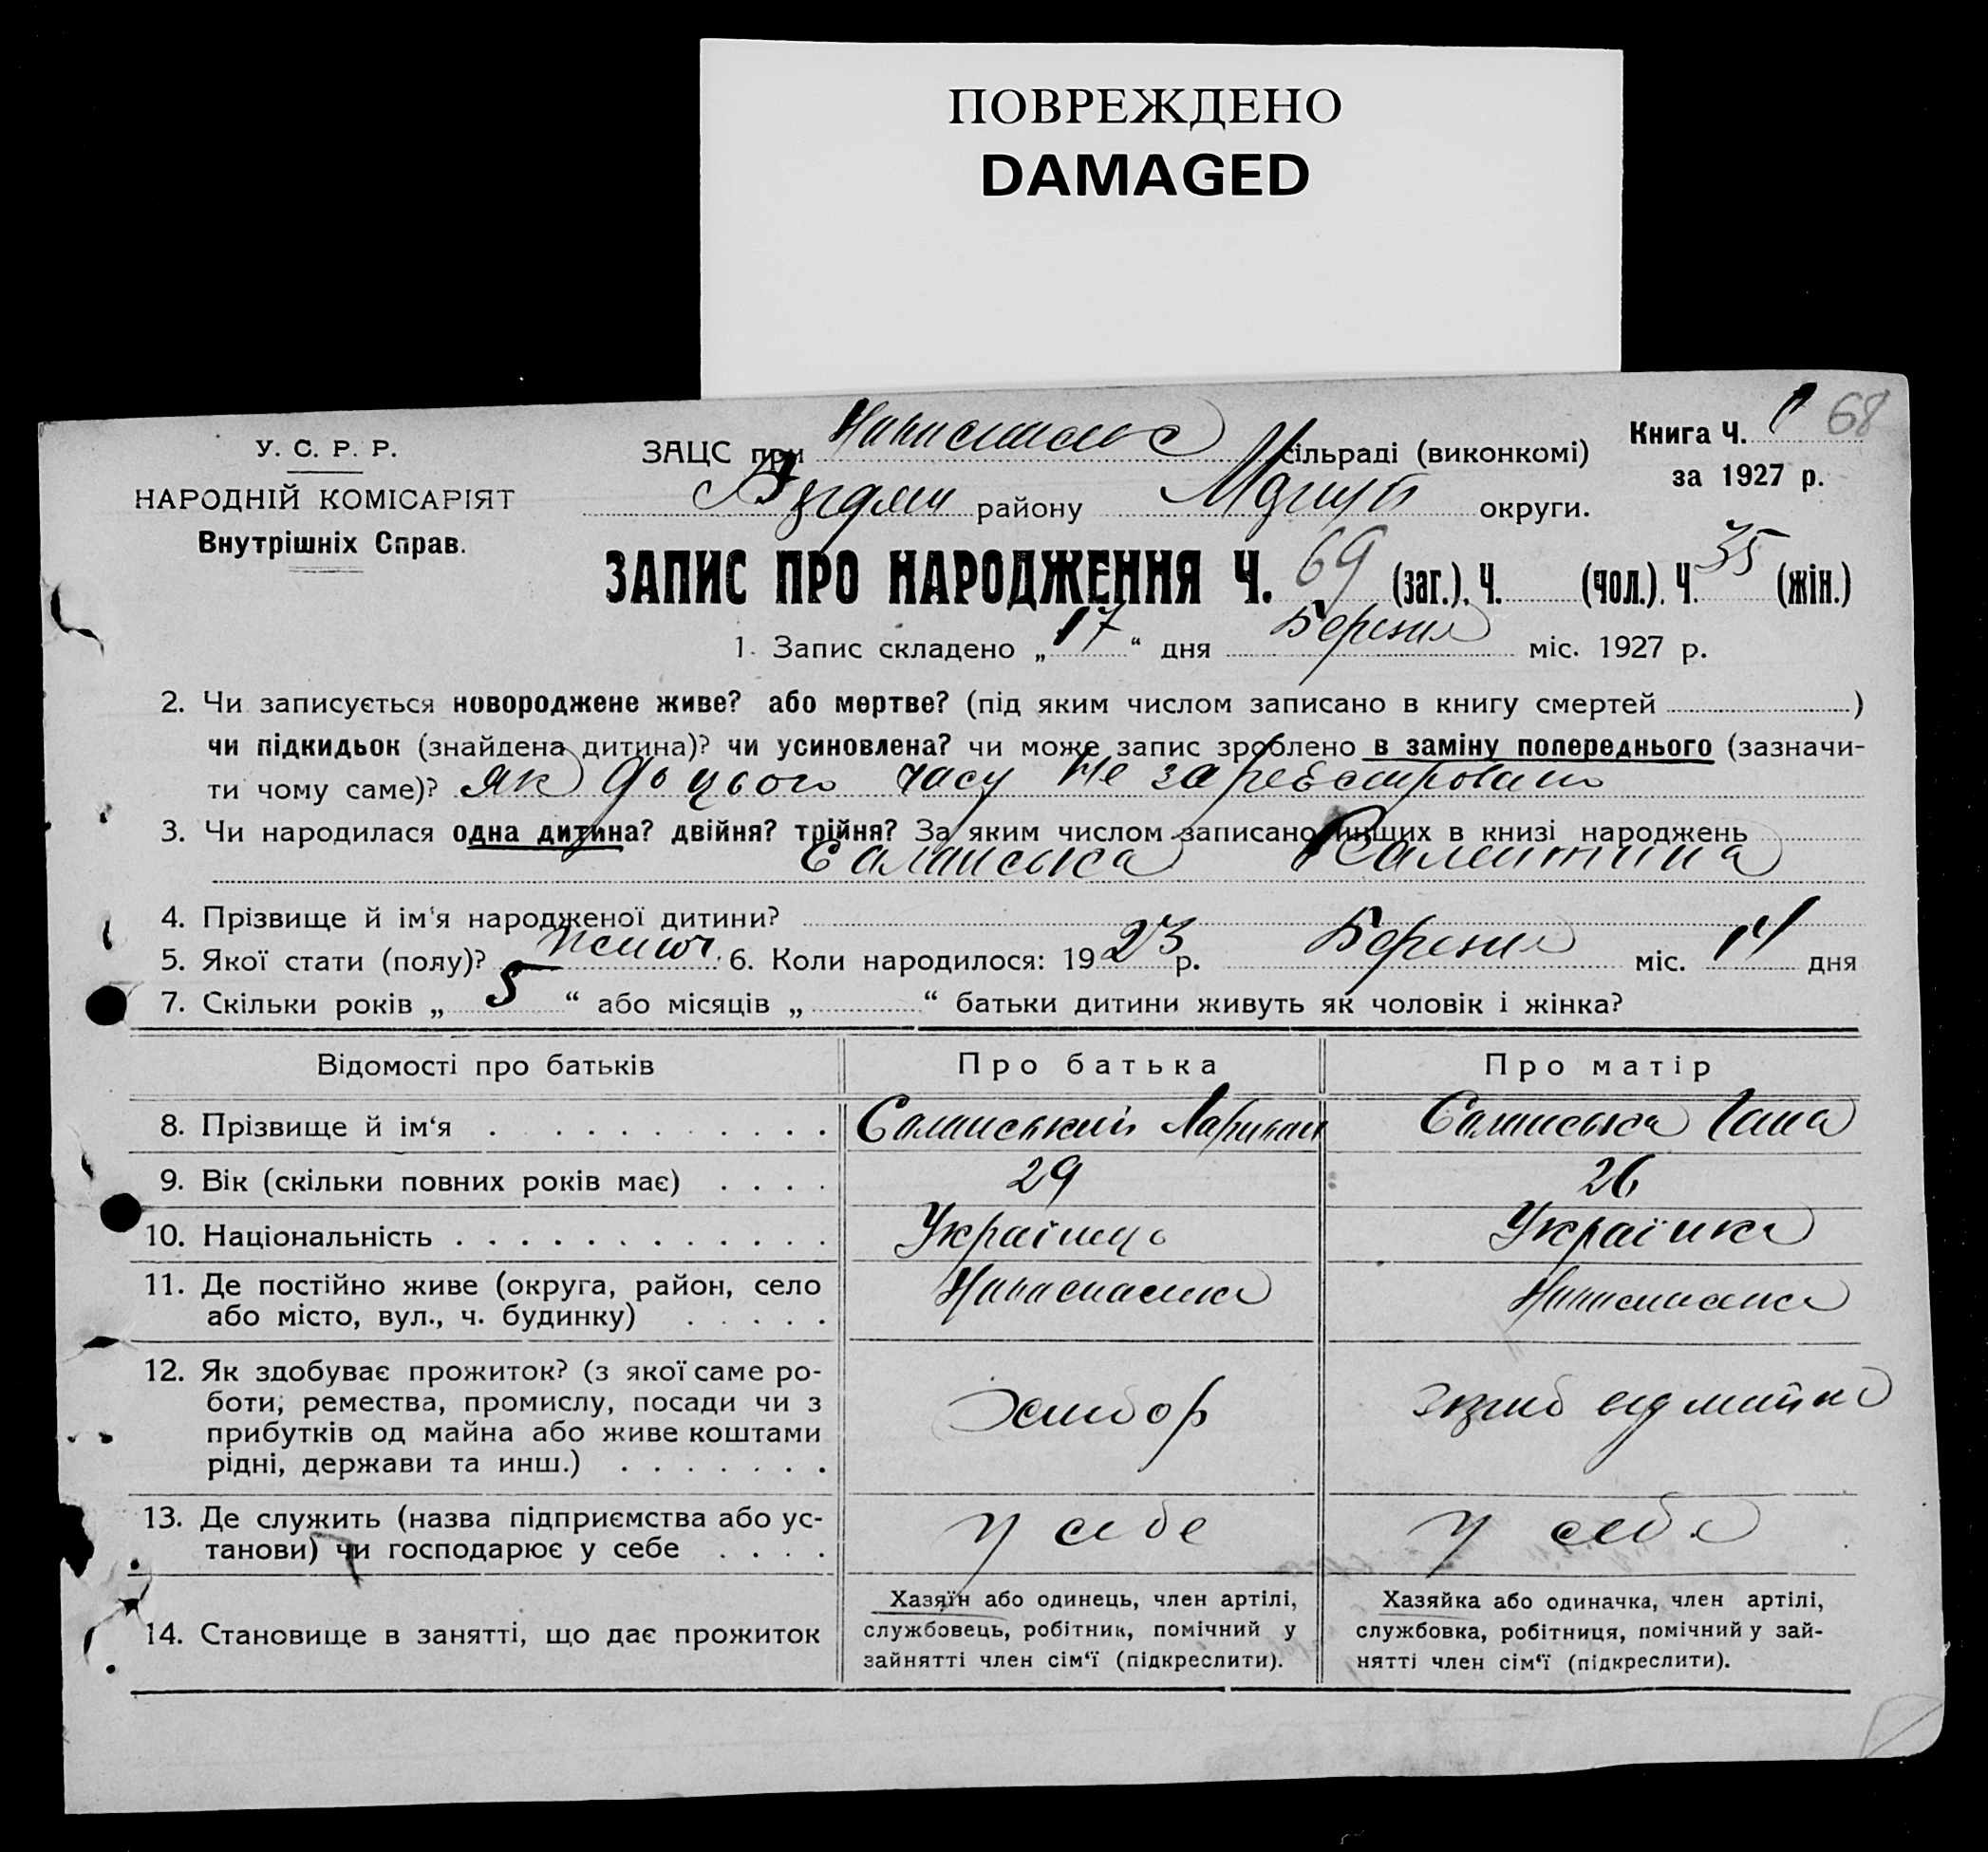 ПОВРЕЖДЕНО
DAMAGED
У. С. Р. Р.
НАРОДНІЙ КОМІСАРІЯТ
Внутрішніх Справ.
ЗАЦС при сільраді (виконкомі)
району округи.
Книга Ч. 1 68
за 1927 р.
ЗАПИС ПРО НАРОДЖЕННЯ Ч. 69 (заг.). Ч. (чол.). Ч. 35 (жін.)
1. Запис складено „ 17 “ дня Березня міс. 1927 р.
2. Чи записується новороджене живе? або мертве? (під яким числом записано в книгу смертей )
чи підкидьок (знайдена дитина)? чи усиновлена? чи може запис зроблено в заміну попереднього (зазначи-
ти чому саме)? як до цього часу не зареєстровано
3. Чи народилася одна дитина? двійня? трійня? За яким числом записано инших в книзі народжень
Валентина
4. Прізвище й ім'я народженої дитини?
5. Якої стати (полу)? жіноч. 6. Коли народилося: 1923 р. Березня міс. 14 дня
7. Скільки років „ 5 “ або місяців „ “ батьки дитини живуть як чоловік і жінка?
Відомості про батьків Про батька Про матір
8. Прізвище й ім‘я
9. Вік (скільки повних років має) 29 26
10. Національність Українець Українка
11. Де постійно живе (округа, район, село
або місто, вул., ч. будинку)
12. Як здобуває прожиток? (з якої саме ро-
боти, ремества, промислу, посади чи з
прибутків од майна або живе коштами
рідні, держави та инш.) Хлибор
13. Де служить (назва підприємства або ус-
танови) чи господарює у себе у себе у себе
14. Становище в занятті, що дає прожиток
Хазяїн або одинець, член артілі,
службовець, робітник, помічний у
зайнятті член сім‘ї (підкреслити).
Хазяйка або одиначка, член артілі,
службовка, робітниця, помічний у зай-
нятті член сім‘ї (підкреслити).